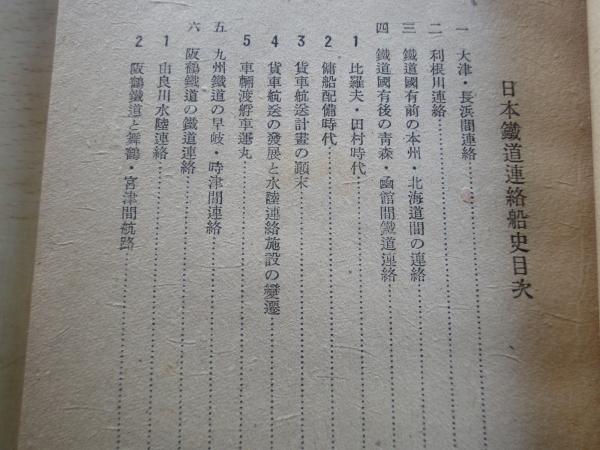 日本鐵道連絡船史目次
一 大津・長浜間連絡
二 利根川連絡
三 鐵道國有前の本州・北海道間の連絡
四 鐵道國有後の靑森・凾館間鐵道連絡
1 比羅夫・田村時代
2 傭船配備時代
3 貨車航送計畫の顚末
4 貨車航送の發展と水陸連絡施設の變遷
5 車輛渡艀車運丸
五 九州鐵道の早岐・時津間連絡
六 阪鶴鐵道の鐵道連絡
1 由良川水陸連絡
2 阪鶴鐵道と舞鶴・宮津間航路